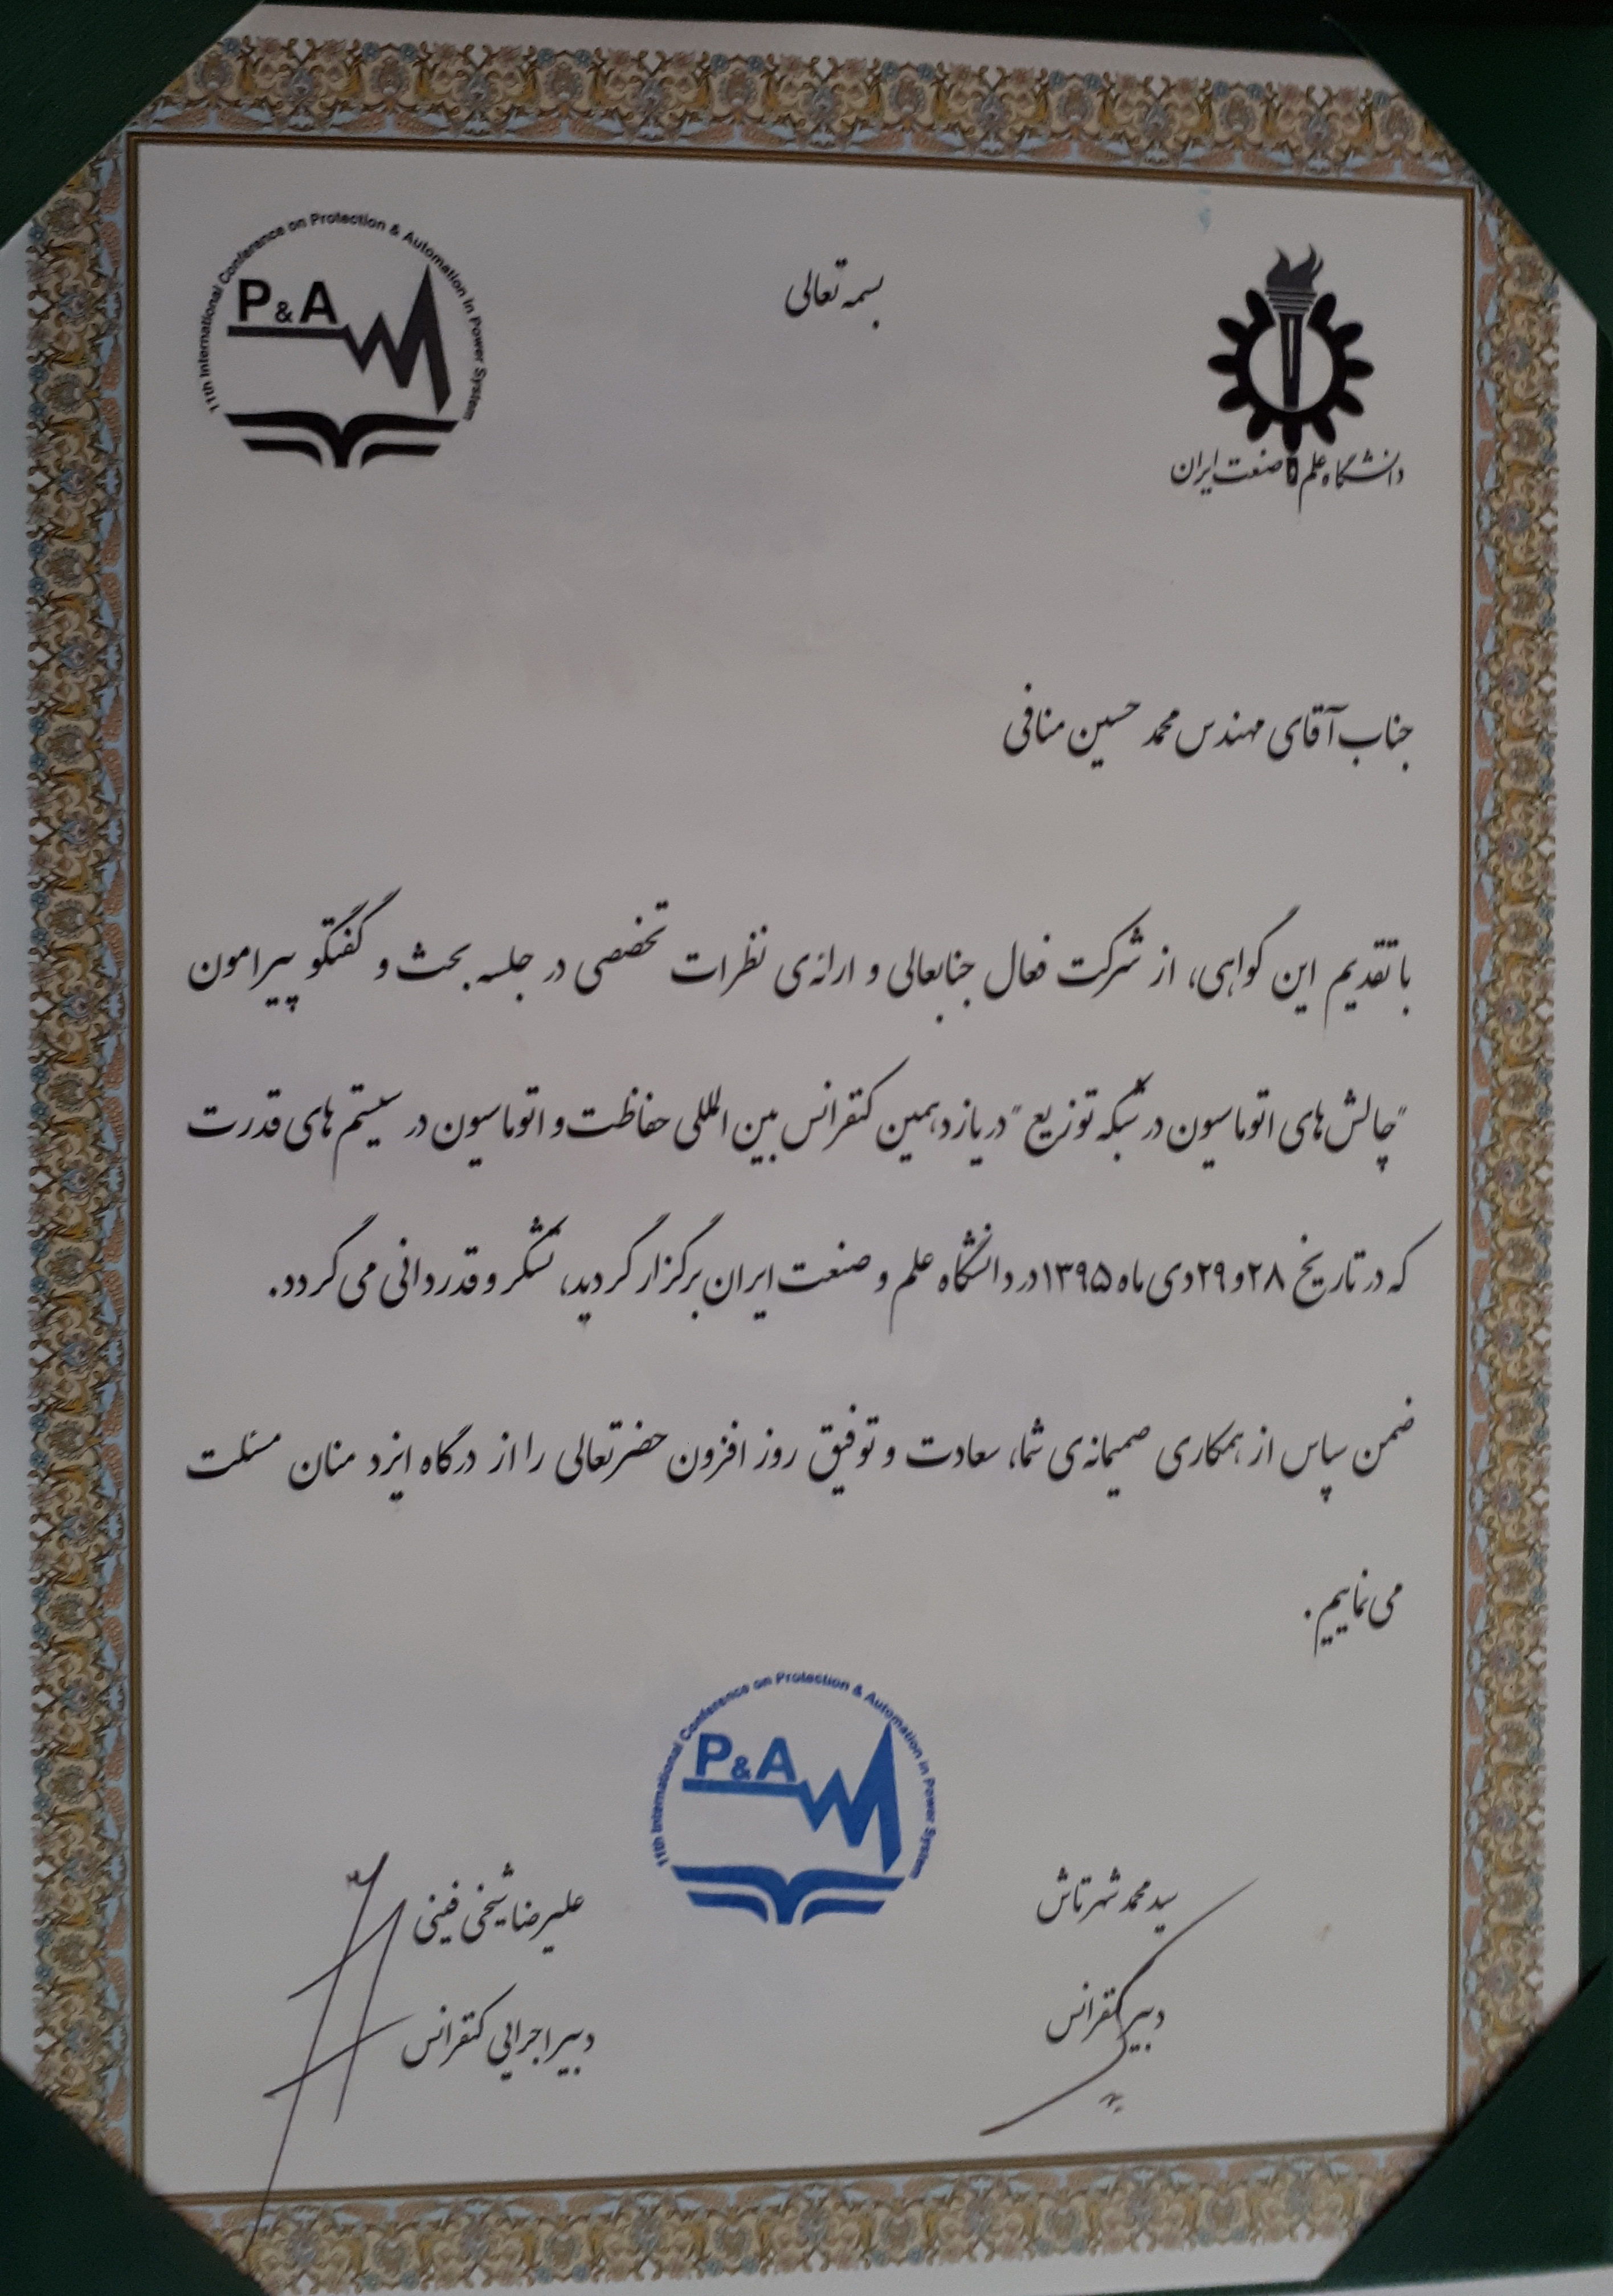 بسمه تعالی
11th International Conference on Protection & Automation in Power System
P&A
دانشگاه علم و صنعت ایران
جناب آقای مهندس محمد حسین منافی
با تقدیم این گواهی، از شرکت فعال جنابعالی و ارائه‌ی نظرات تخصصی در جلسه بحث و گفتگو پیرامون
"چالش‌های اتوماسیون در شبکه توزیع" در یازدهمین کنفرانس بین المللی حفاظت و اتوماسیون در سیستم های قدرت
که در تاریخ ۲۸ و ۲۹ دی ماه ۱۳۹۵ در دانشگاه علم و صنعت ایران برگزار گردید، تشکر و قدردانی می گردد.
ضمن سپاس از همکاری صمیمانه‌ی شما، سعادت و توفیق روز افزون حضرتعالی را از درگاه ایزد منان مسئلت
می نماییم.
11th International Conference on Protection & Automation in Power System
P&A
سید محمد شهرتاش
دبیر کنفرانس
علیرضا شیخی فینی
دبیر اجرایی کنفرانس